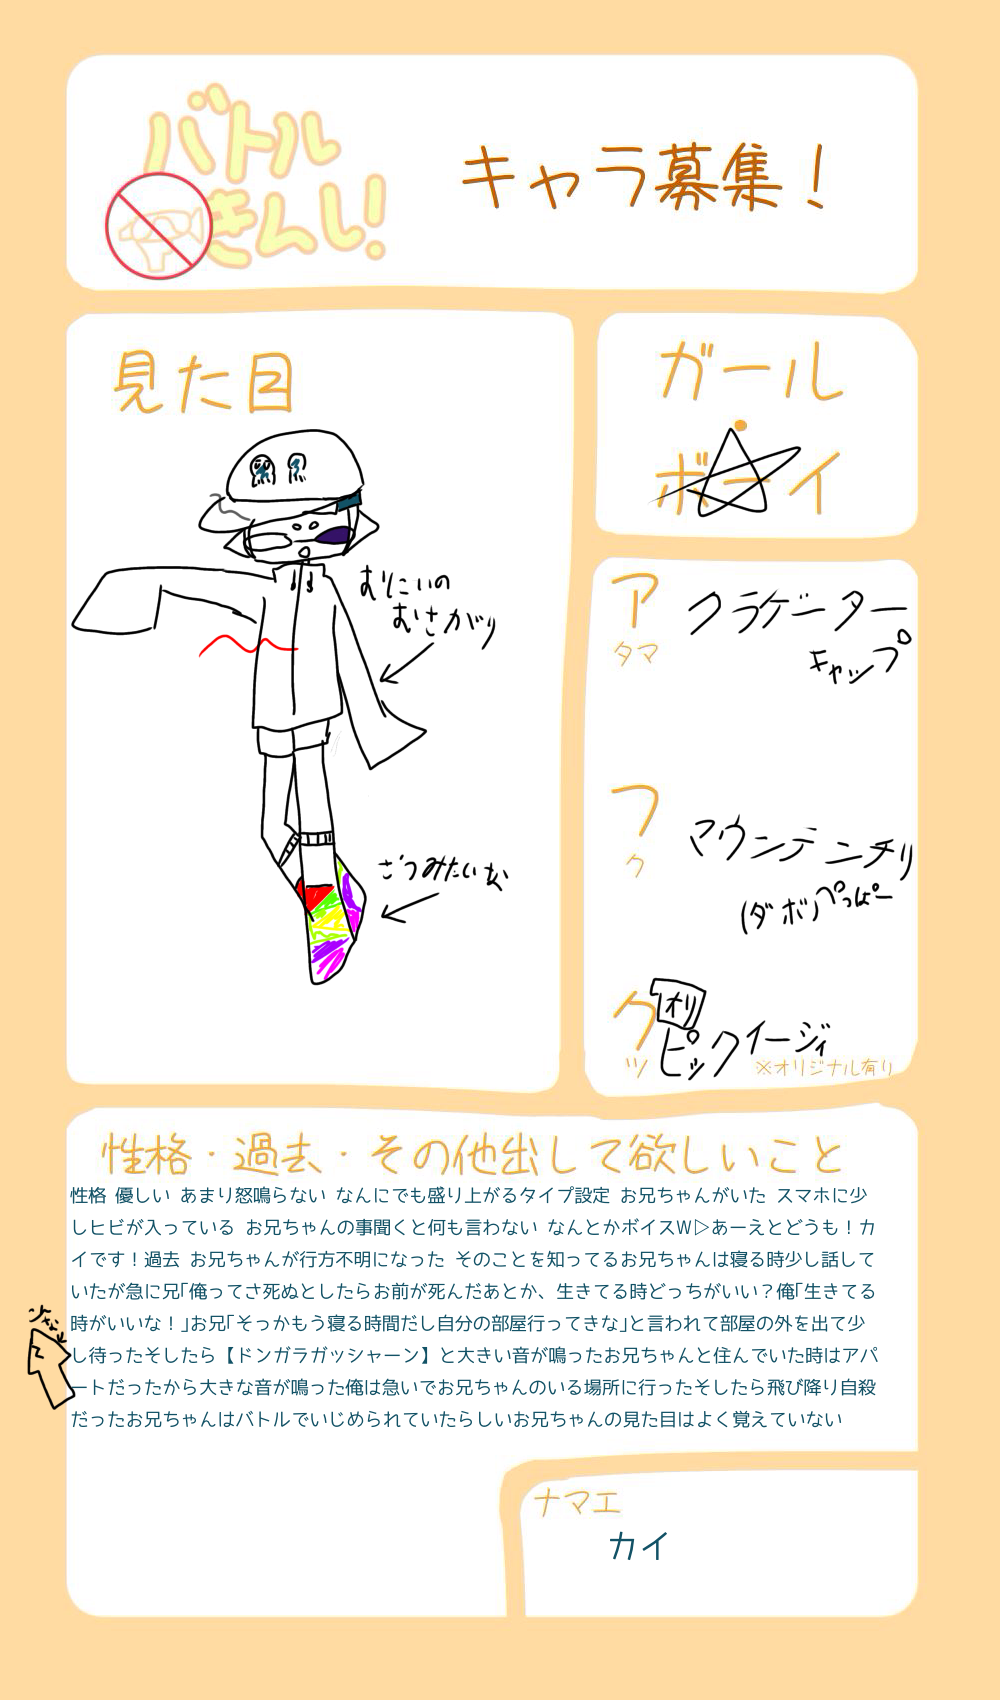 バトル
きんし!
キャラ募集！
見た目
ガール
・
ボーイ
アタマ
クラゲーター
キャップ
フク
マウンテンチリ
(ダボ)ぺっぱー
クツ
オリ
ピックイージィ
※オリジナル有り
むりこいの
むさがり
ざつみたいな
性格・過去・その他出して欲しいこと
性格 優しい あまり怒鳴らない なんにでも盛り上がるタイプ設定 お兄ちゃんがいた スマホに少
しヒビが入っている お兄ちゃんの事聞くと何も言わない なんとかボイスW▷あーえとどうも！カ
イです！過去 お兄ちゃんが行方不明になった そのことを知ってるお兄ちゃんは寝る時少し話して
いたが急に兄｢俺ってさ死ぬとしたらお前が死んだあとか、生きてる時どっちがいい？俺｢生きてる
時がいいな！｣お兄｢そっかもう寝る時間だし自分の部屋行ってきな｣と言われて部屋の外を出て少
し待ったそしたら【ドンガラガッシャーン】と大きい音が鳴ったお兄ちゃんと住んでいた時はアパ
ートだったから大きな音が鳴った俺は急いでお兄ちゃんのいる場所に行ったそしたら飛び降り自殺
だったお兄ちゃんはバトルでいじめられていたらしいお兄ちゃんの見た目はよく覚えていない
ナマエ
カイ